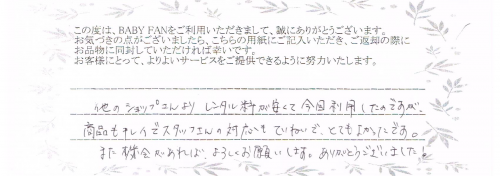 この度は、BABY FANをご利用いただきまして、誠にありがとうございます。
お気づきの点がございましたら、こちらの用紙にご記入いただき、ご返却の際に
お品物に同封していただければ幸いです。
お客様にとって、よりよいサービスをご提供できるように努力いたします。
他のショップさんより レンタル料が安くて今回利用したのですが、
商品もキレイでスタッフさんの対応もていねいで、とてもよかったです。
また機会があれば、よろしくお願いします。ありがとうございました!